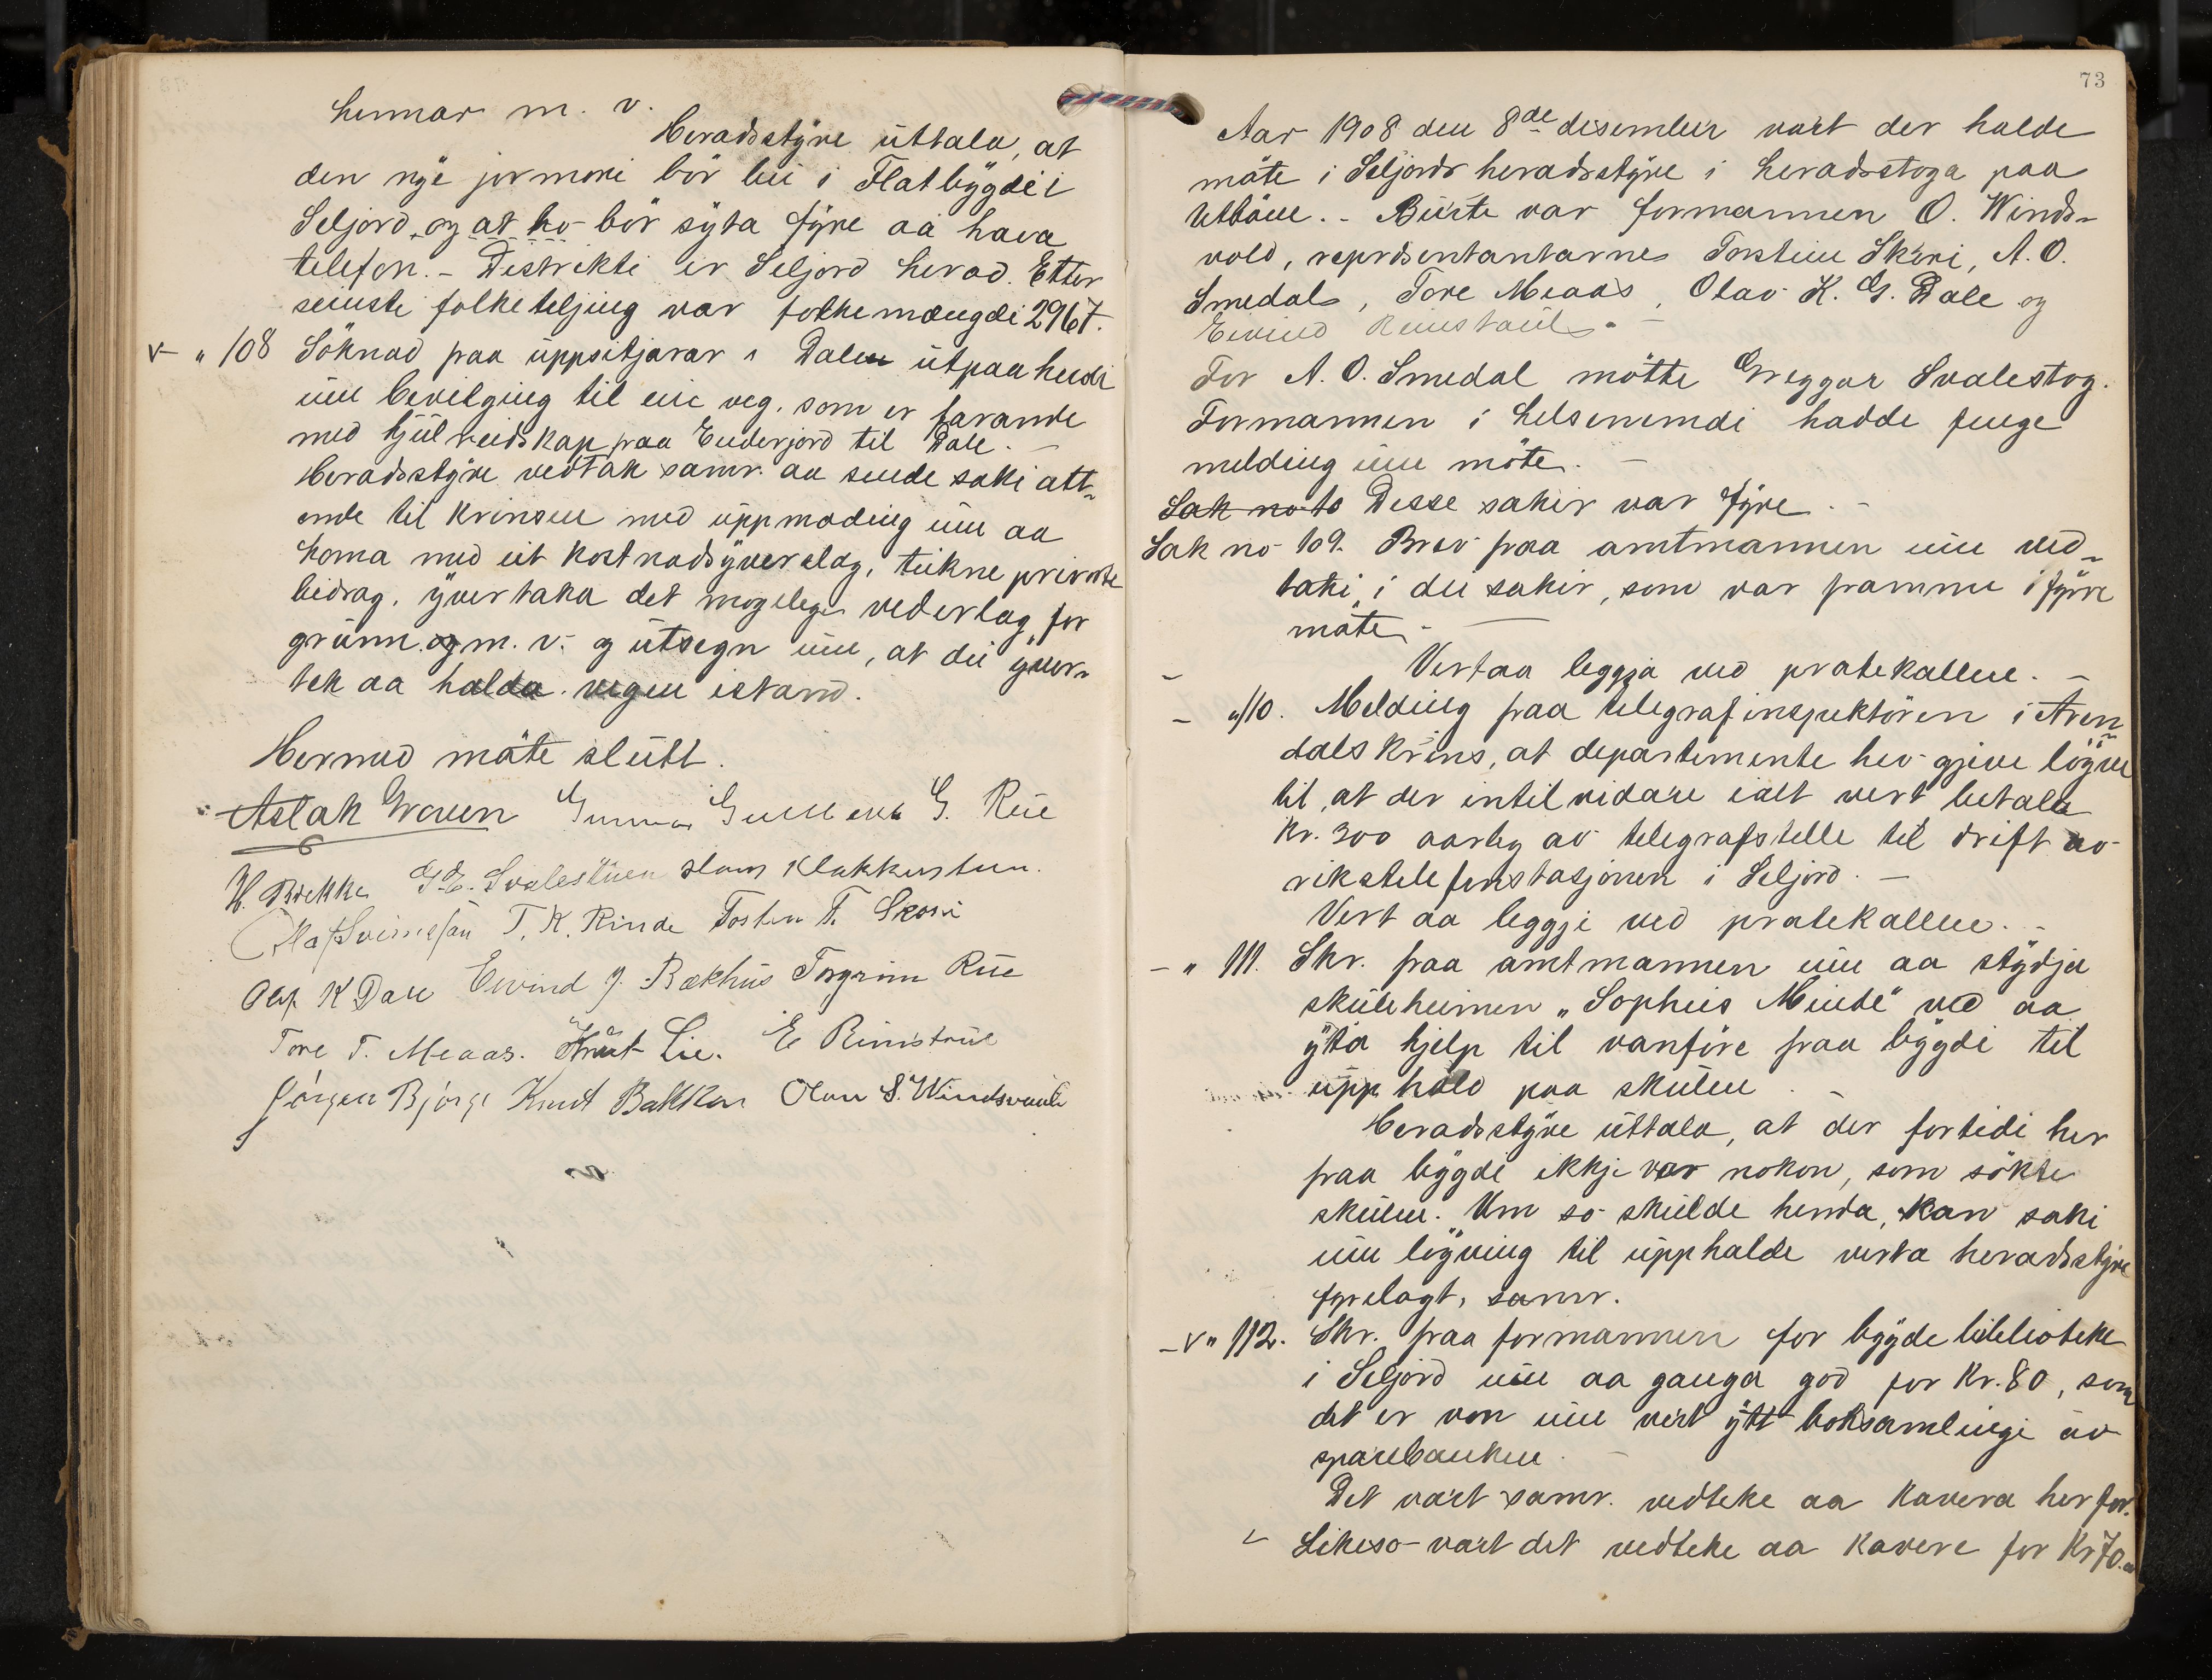 heimar m. v.
Heradsstyre uttala, at
den nye jormori bör bu i Flatbygdi i
Seljord, og at ho bör syta fyre aa hava
telefon. - Distrikti er Seljord herad. Etter
seinste folketeljing var folkemængdi 2967.
v - " 108 Söknad fraa uppsitjarar i Dalen utpaa heidi
um bevilging til ein veg, som er farande
med hjulreidskap fraa Enderjord til Dale. -
Heradsstyre vedtak samr. aa sende saki att-
ende til krinsen med uppmoding um aa
koma med eit kostnadsyverslag, teikne private
bidrag, yvertaka det mogelege vederlag for
grunn og m. v. og utsegn um, at dei yver-
tek aa halda vegen istand.
Hermed möte slutt.
Aslak Graven Gunnar G. Rue
H. Brekke G. E. Svalestuen Klakkustuen.
Olaf Sveinsson T. K. Rinde Tosten T. Skori
Olaf K Dale Eivind J. Bækhus Torgrim Rue
Tore T. Meaas. Knut Lie. E Rinistaul
Jörgen Björge Knut Bakken Olav S. Windsvaul
73
Aar 1908 den 8de desember vart der halde
möte i Seljords heradsstyre i heradsstoga paa
Utböen. - Burte var formannen O. Winds-
vold, reprdsentantarnes Torstein Skori, A. O.
Smedal, Tore Meaas, Olav K. G. Dale og
Eivind Rinistaul. -
For A. O. Smedal mötte Greggar Svalestog.
Formannen i helsenemdi hadde fenge
melding um möte. -
Sak no to Desse sakir var fyre. -
Sak no 109. Brev fraa amtmannen um ved-
taki i dei sakir, som var framme i fyrre
möte. -
- Vert aa leggja ved protekallen. -
- " 110. Melding fraa telegrafinspektören i Aren-
dals krins, at departemente hev gjeve löyve
til, at der intil vidare ialt vert betala
kr. 300 aarleg av telegrafstelle til drift av
rikstelefonstasjonen i Seljord. -
Vert aa leggje ved protekallen. -
- " 111. Skr. fraa amtmannen um aa stydja
skuleheimen "Sophies Minde" ved aa
yta hjelp til vanföre fraa bygdi til
upphald paa skulen. -
Heradsstyre uttala, at der fortidi her
fraa bygdi ikkje var nokon, som sökte
skulen. Um so skulde henda, kan saki
um löyving til upphalde verta heradsstyre
fyrelagt, samr.
- v " 112. Skr. fraa formannen for bygdebiblioteke
i Seljord um aa ganga god for Kr. 80, som
det er von um vert ytt boksamlingi av
sparebanken. -
Det vart samr. vedteke aa kavera herfor.
v Likeso vart det vedteke aa kavere for Kr 70.